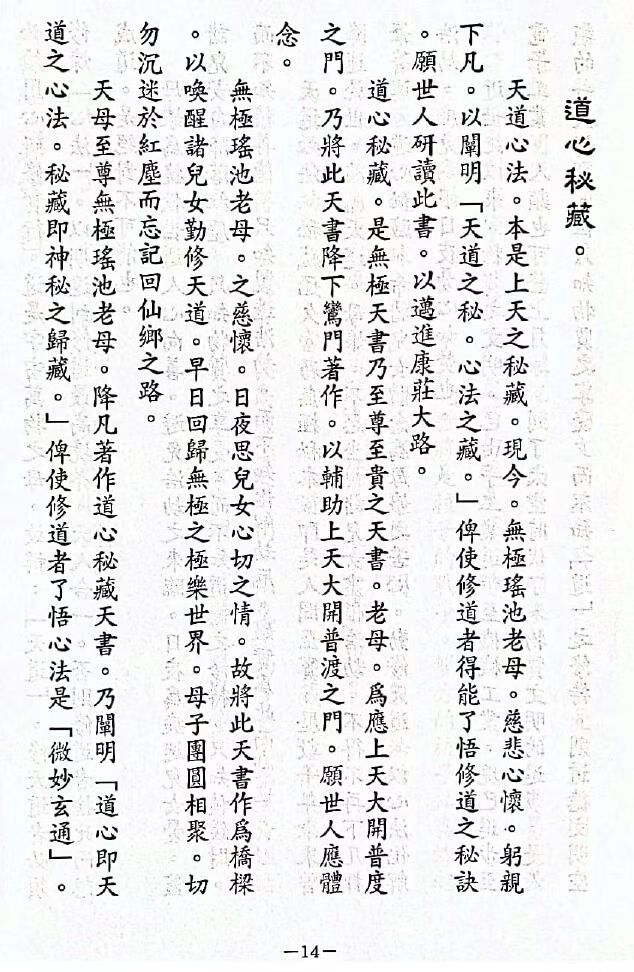 道心秘藏。
天道心法。本是上天之秘藏。現今。無極瑤池老母。慈悲心懷。躬親
下凡。以闡明「天道之秘。心法之藏。」俾使修道者得能了悟修道之秘訣
。願世人研讀此書。以邁進康莊大路。
道心秘藏。是無極天書乃至尊至貴之天書。老母。爲應上天大開普度
之門。乃將此天書降下鸞門著作。以輔助上天大開普渡之門。願世人應體
念。
無極瑤池老母。之慈懷。日夜思兒女心切之情。故將此天書作爲橋樑
。以喚醒諸兒女勤修天道。早日回歸無極之極樂世界。母子團圓相聚。切
勿沉迷於紅塵而忘記回仙鄉之路。
天母至尊無極瑤池老母。降凡著作道心秘藏天書。乃闡明「道心即天
道之心法。秘藏即神秘之歸藏。」俾使修道者了悟心法是「微妙玄通」。
—14—